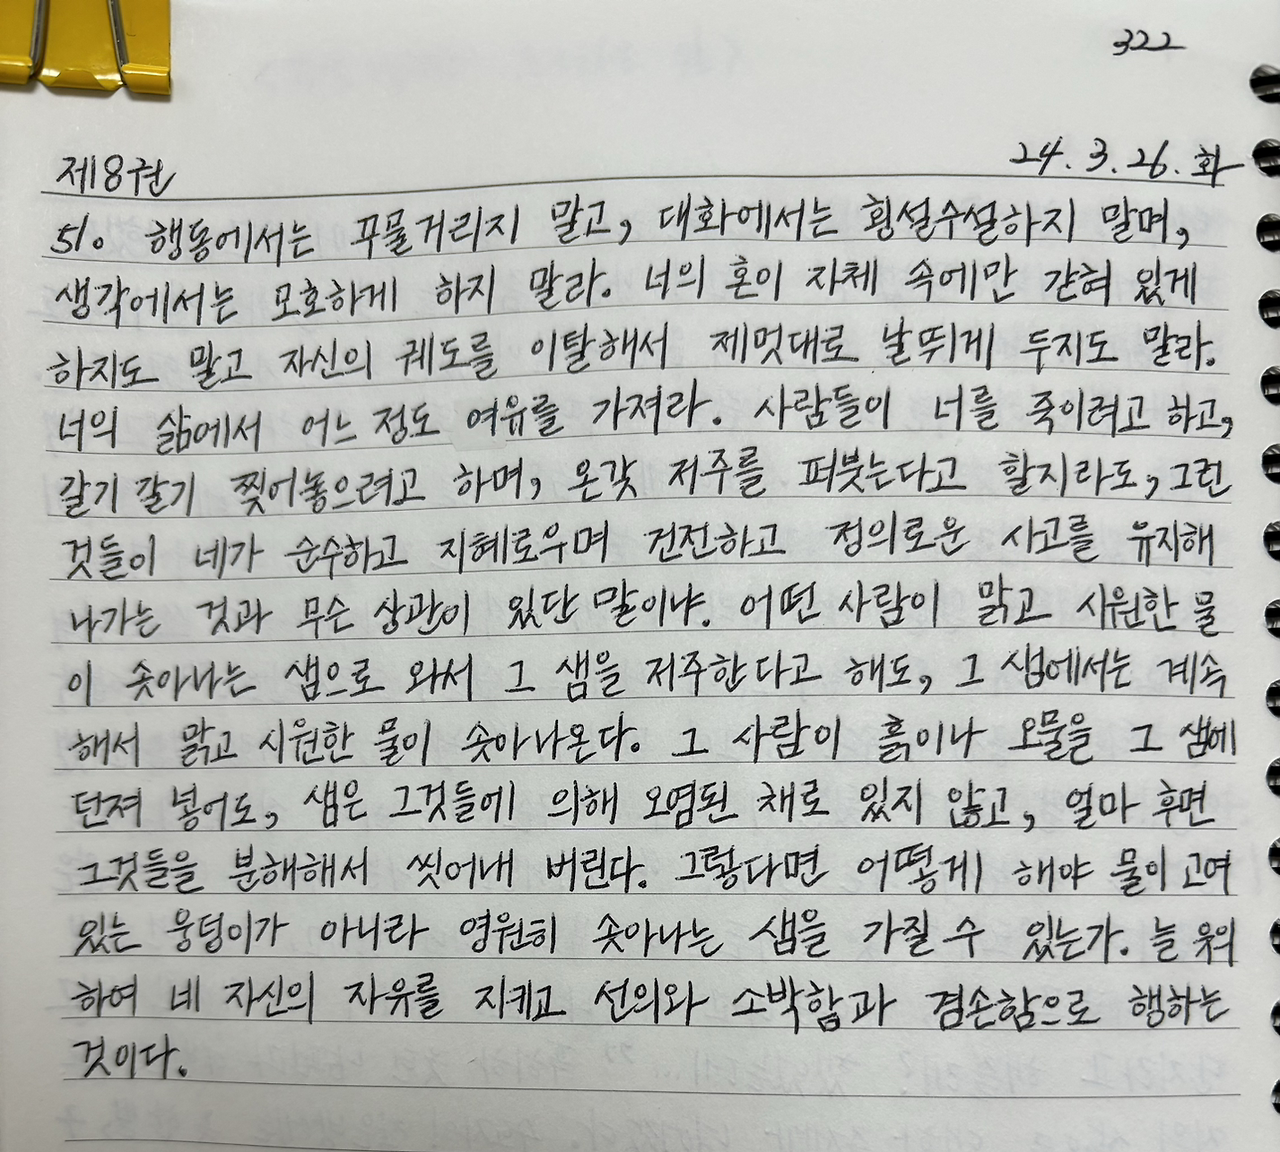 322
24. 3. 26. 화
제8권
51. 행동에서는 꾸물거리지 말고, 대화에서는 횡설수설하지 말며,
생각에서는 모호하게 하지 말라. 너의 혼이 자체 속에만 갇혀 있게
하지도 말고 자신의 궤도를 이탈해서 제멋대로 날뛰게 두지도 말라.
너의 삶에서 어느 정도 여유를 가져라. 사람들이 너를 죽이려고 하고,
갈기 갈기 찢어놓으려고 하며, 온갖 저주를 퍼붓는다고 할지라도, 그런
것들이 네가 순수하고 지혜로우며 건전하고 정의로운 사고를 유지해
나가는 것과 무슨 상관이 있단 말이냐. 어떤 사람이 맑고 시원한 물
이 솟아나는 샘으로 와서 그 샘을 저주한다고 해도, 그 샘에서는 계속
해서 맑고 시원한 물이 솟아나온다. 그 사람이 흙이나 오물을 그 샘에
던져 넣어도, 샘은 그것들에 의해 오염된 채로 있지 않고, 얼마 후면
그것들을 분해해서 씻어내 버린다. 그렇다면 어떻게 해야 물이 고여
있는 웅덩이가 아니라 영원히 솟아나는 샘을 가질 수 있는가. 늘 유의
하여 네 자신의 자유를 지키고 선의와 소박함과 겸손함으로 행하는
것이다.